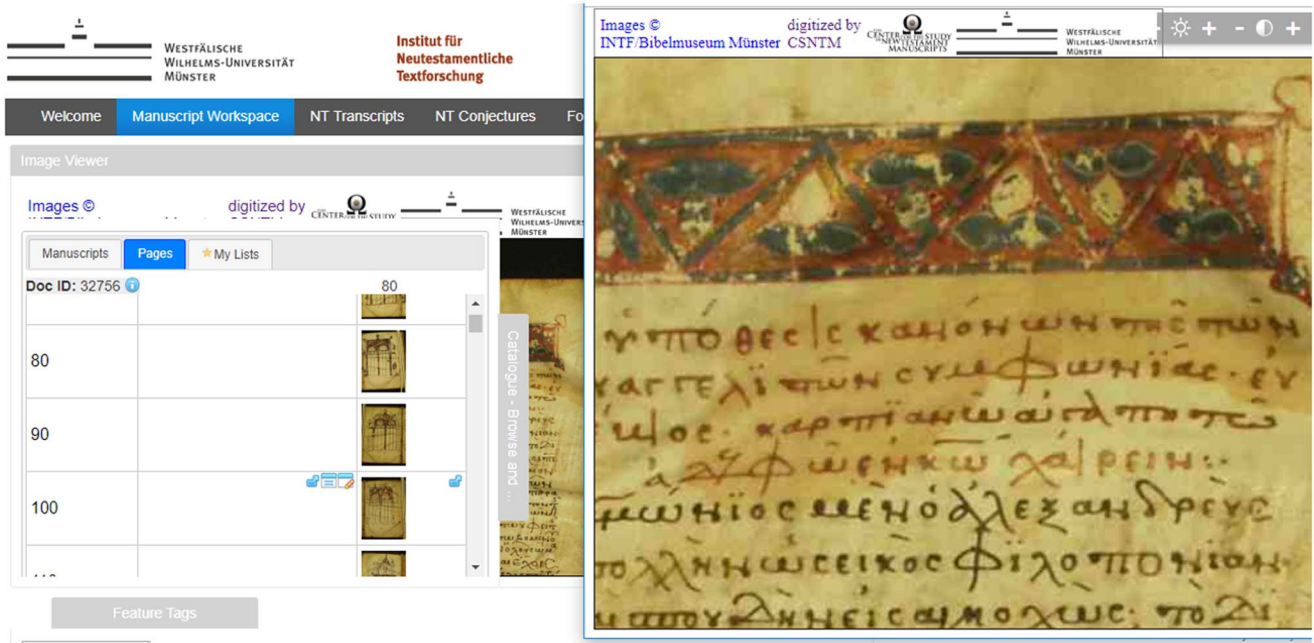 WESTFÄLISCHE
WILHELMS-UNIVERSITÄT
MÜNSTER
Institut für
Neutestamentliche
Textforschung
Welcome
Manuscript Workspace
NT Transcripts
NT Conjectures
Fo
Image Viewer
Images ©
digitized by
CENTER FOR THE STUDY
WESTFÄLISCHE
WILHELMS-UNIVERS
MÜNSTER
Manuscripts
Pages
My Lists
Doc ID: 32756
80
80
90
100
110
Catalogue - Browse and ...
Feature Tags
Images ©
INTF/Bibelmuseum Münster
digitized by
CSNTM
CENTER FOR THE STUDY
OF NEW TESTAMENT
MANUSCRIPTS
WESTFÄLISCHE
WILHELMS-UNIVERSITÄT
MÜNSTER
- +
- +
ὑπόθεσις κανόνων τῆς τῶν
συμφωνΐας· ἐυ
καρπϊανῶ ἀγαπητῶ
ἐν κω χαίρειν:
μώνϊος μὲν ὁ ἀλεξανδρεὺς
πολλὴν ὡς εἰκὸς φϊλοπονΐαν
τὸ δϊ